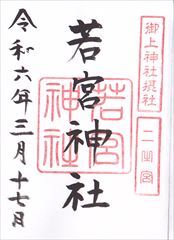 御上神社摂社
二出宮
若宮神社
若宮神社
令和六年三月十七日